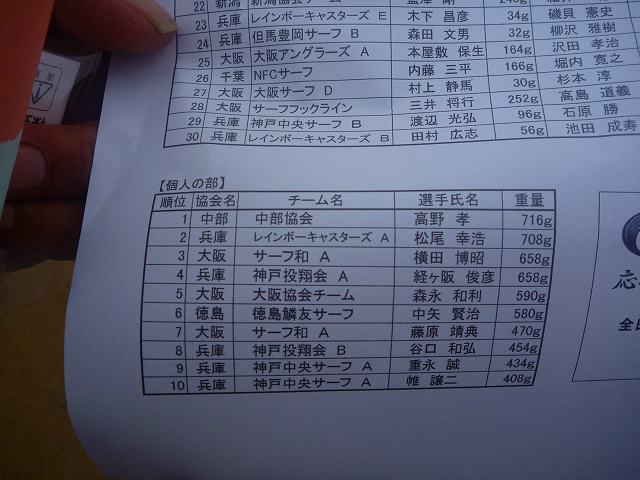 22 新潟
23 兵庫 レインボーキャスターズ E 木下 昌彦 34g 磯貝 憲史
24 兵庫 但馬豊岡サーフ B 森田 文男 32g 柳沢 雅樹
25 大阪 大阪アングラーズ A 本屋敷 保生 164g 沢田 孝治
26 千葉 NFCサーフ 内藤 三平 166g 堀内 寛之
27 大阪 大阪サーフ D 村上 静馬 30g 杉本 淳
28 大阪 サーフフックライン 三井 将行 252g 高島 道義
29 兵庫 神戸中央サーフ B 渡辺 光弘 96g 石原 勝
30 兵庫 レインボーキャスターズ B 田村 広志 56g 池田 成寿
【個人の部】
順位 協会名 チーム名 選手氏名 重量
1 中部 中部協会 高野 孝 716g
2 兵庫 レインボーキャスターズ A 松尾 幸浩 708g
3 大阪 サーフ和 A 横田 博昭 658g
4 兵庫 神戸投翔会 A 経ヶ阪 俊彦 658g
5 大阪 大阪協会チーム 森永 和利 590g
6 徳島 徳島鱗友サーフ 中矢 賢治 580g
7 大阪 サーフ和 A 藤原 靖典 470g
8 兵庫 神戸投翔会 B 谷口 和弘 454g
9 兵庫 神戸中央サーフ A 重永 誠 434g
10 兵庫 神戸中央サーフ A 帷 譲二 408g
応
全日